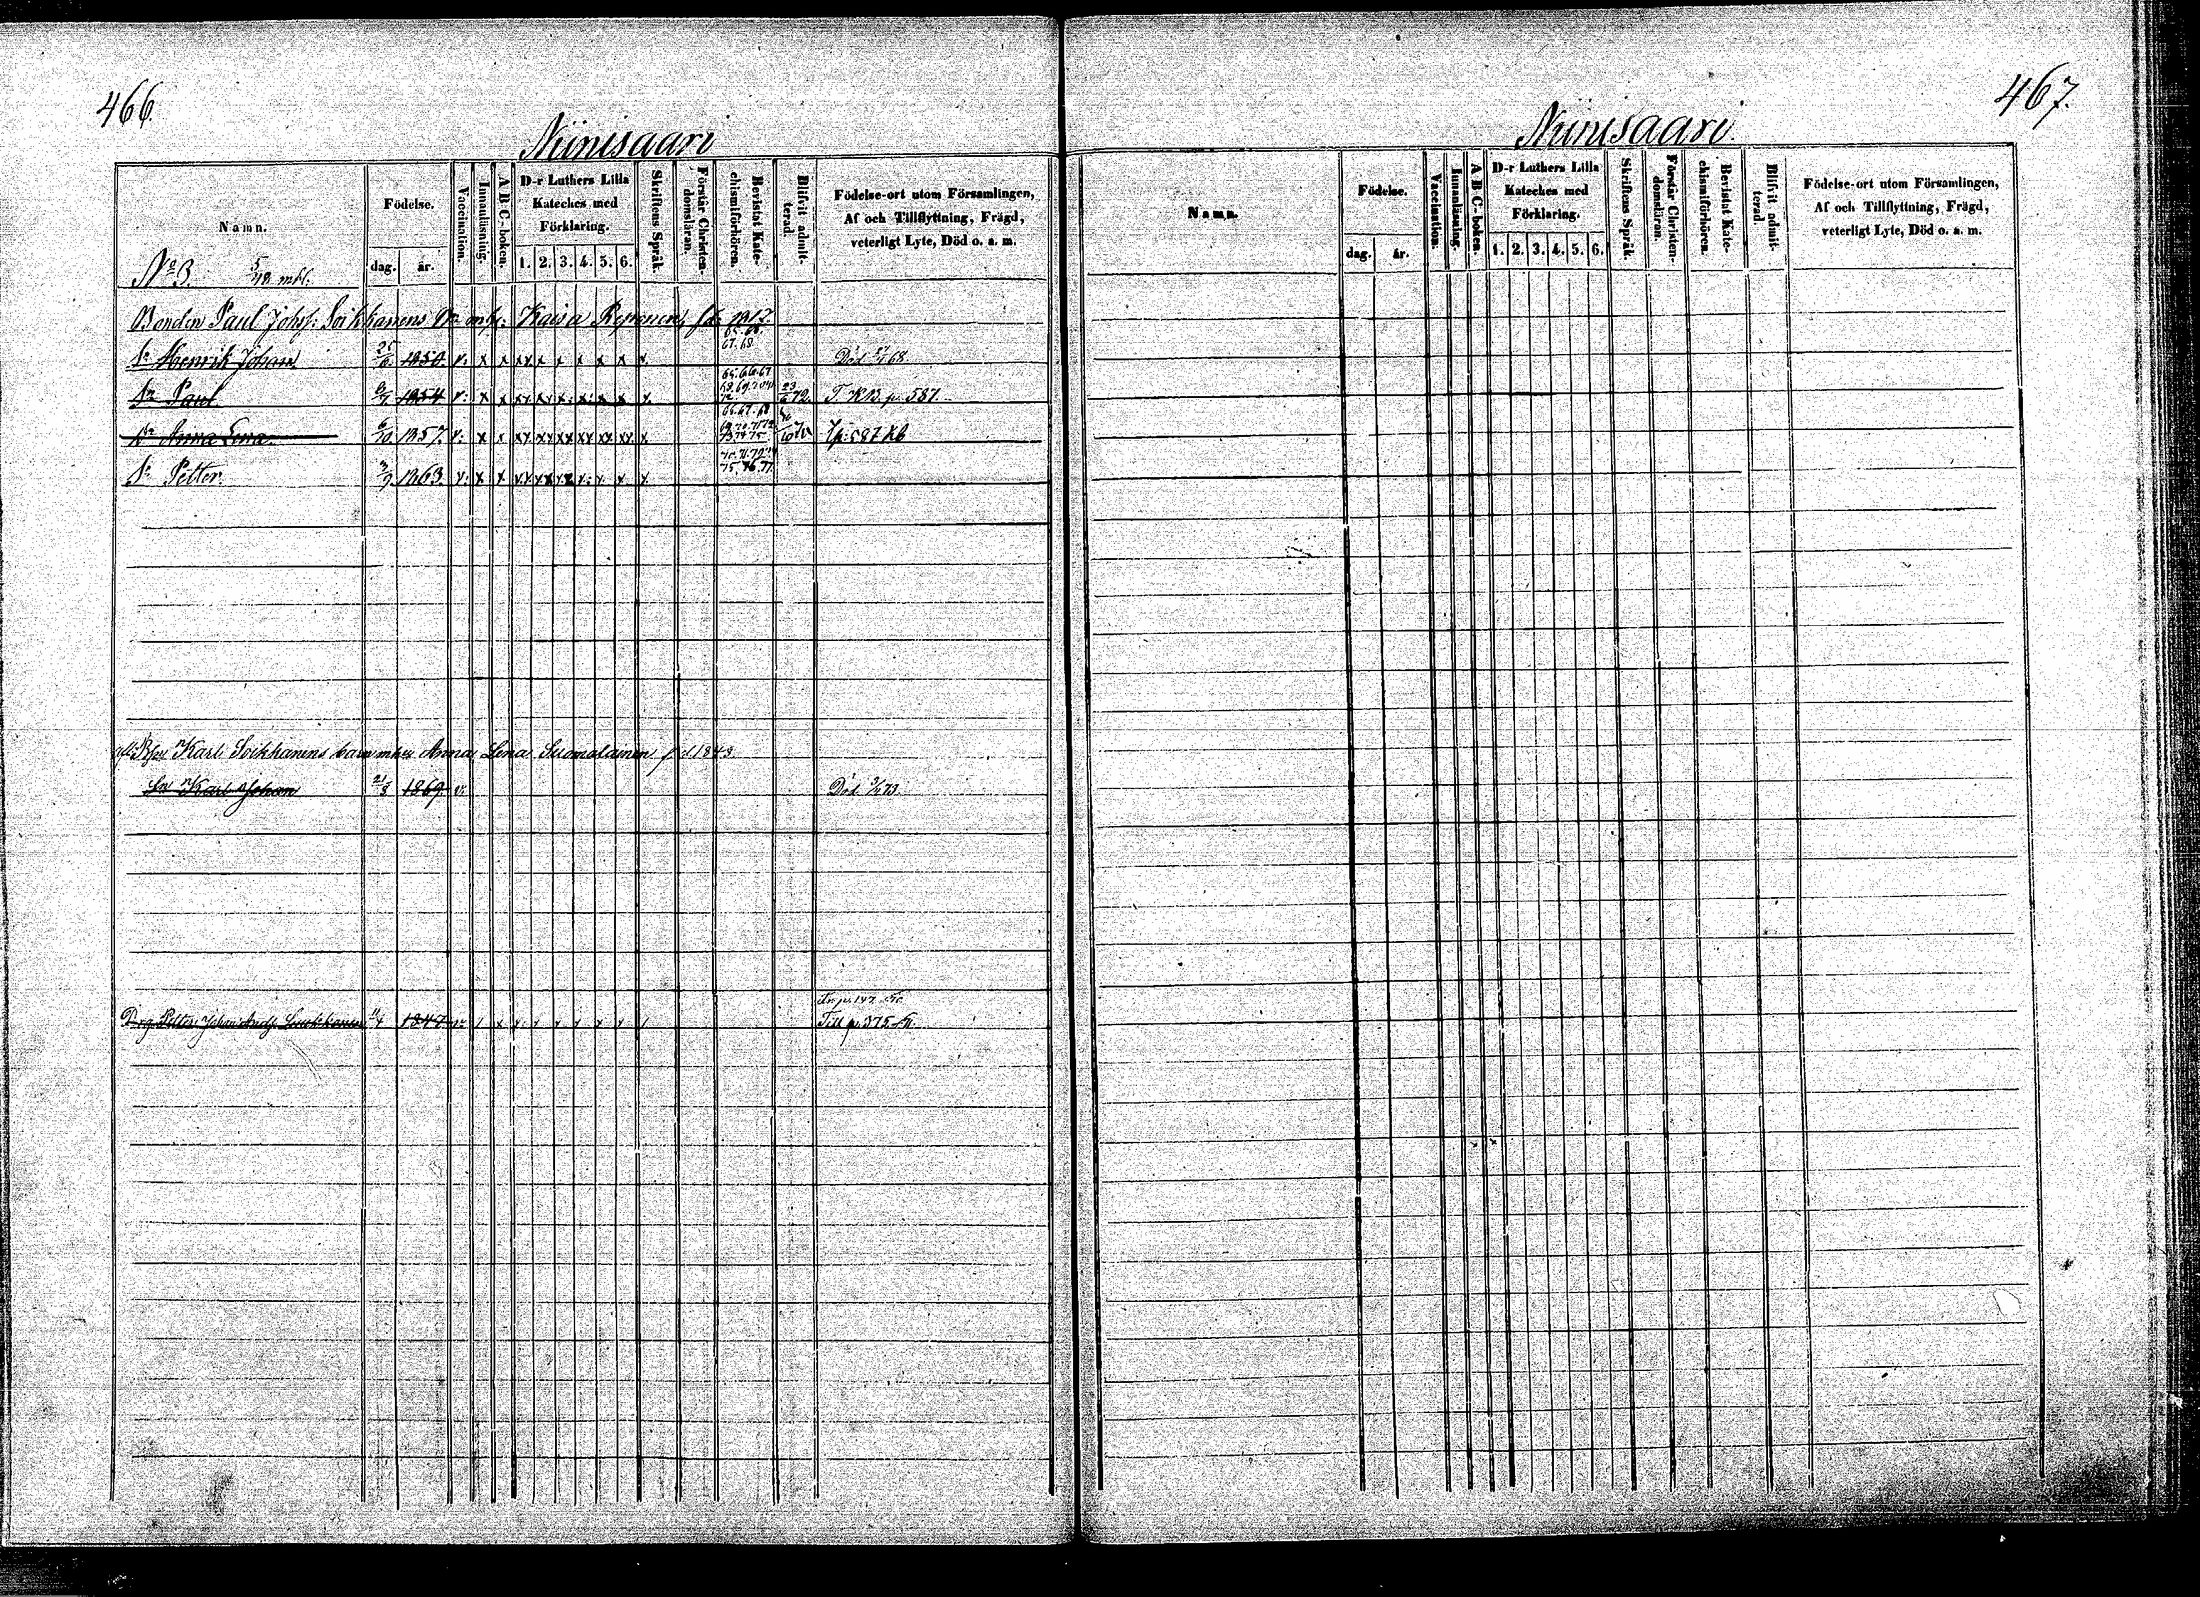 466.
Niinisaari
Namn.
Födelse.
dag.
år.
Vaccination.
Innanläsning.
A B C-boken.
D-r Luthers Lilla
Kateches med
Förklaring.
1. 2. 3. 4. 5. 6.
Skriftens Språk.
Förstår Christen-
domsläran.
Bevistat Kate-
chismiförhören.
Blifvit admit-
terad.
Födelse-ort utom Församlingen,
Af och Tillflyttning, Frägd,
veterligt Lyte, Död o. a. m.
No 3. 5/48 mtl.
Bonden Paul Johss: Soikkanens
Kaisa
Sn Henrik Johan 25/6 1850. v. x x xx x x x x x Död 68
67. 68.
65. 66. 67
Sn Paul 1854 v. x x 72. T. KB. p. 587.
66. 67. 68
Dr Anna Lena 6/10 1857. v. x x xx xx xx xx xx xx x p. 587 KB
73 74 75
Sn Petter 3/9 1863 v. x x
75. 76. 77.
Karl Soikkanens barn Anna Lena Suomalainen f d. 1843
Sn Karl Johan 21/8 1869 v. Död 73
Drg Petter Joh: Andf. Soikkanen 1847
Till p. 375.
467.
Niinisaari
Namn.
Födelse.
dag.
år.
Vaccination.
Innanläsning.
A B C-boken.
D-r Luthers Lilla
Kateches med
Förklaring.
1. 2. 3. 4. 5. 6.
Skriftens Språk
Förstår Christen-
domsläran.
Bevistat Kate-
chismiförhören.
Blifvit admit-
terad.
Födelse-ort utom Församlingen,
Af och Tillflyttning, Frägd,
veterligt Lyte, Död o. a. m.